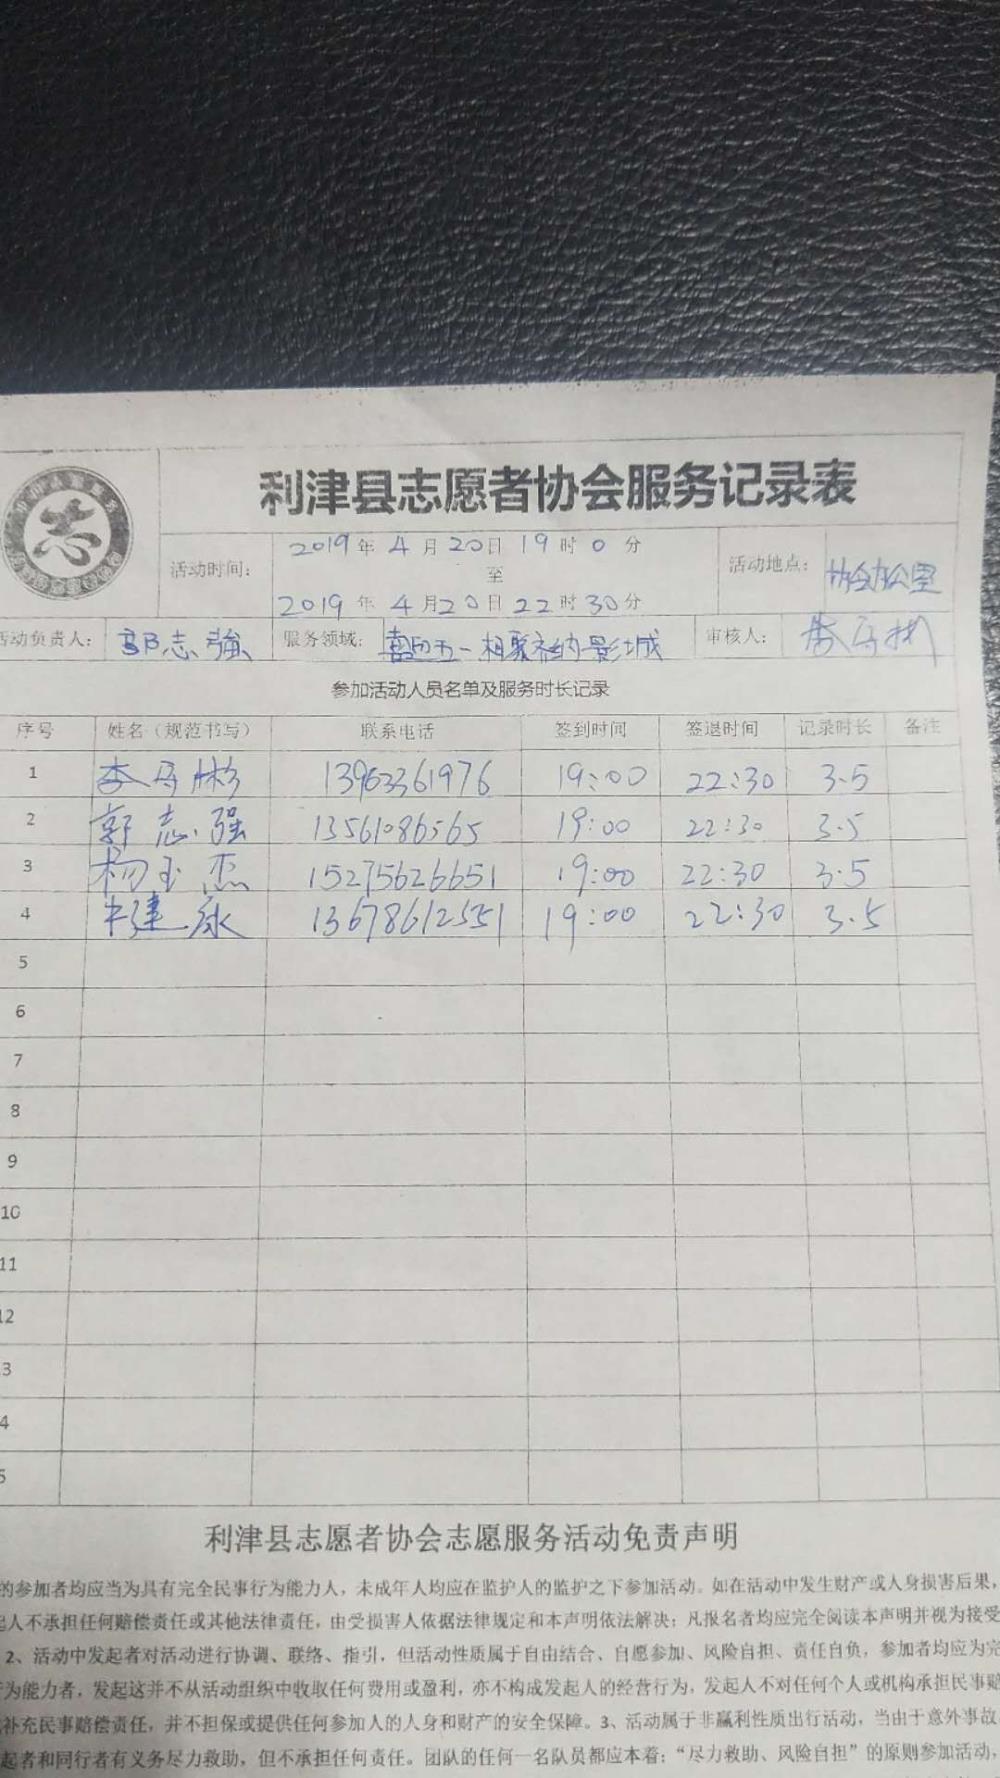 利津县志愿者协会服务记录表
活动时间：
2019年4月20日19时0分
至
2019年4月20日22时30分
活动地点：
活动负责人：郭志強 服务领域：喜迎五一相聚 影城 审核人：
参加活动人员名单及服务时长记录
序号 姓名（规范书写） 联系电话 签到时间 签退时间 记录时长 备注
1 李 彬 13963361976 19:00 22:30 3.5
2 郭志强 13561086565 19:00 22:30 3.5
3 杨玉杰 15275626651 19:00 22:30 3.5
4 建永 13678612551 19:00 22:30 3.5
5
6
7
8
9
10
11
12
3
4
5
利津县志愿者协会志愿服务活动免责声明
的参加者均应当为具有完全民事行为能力人，未成年人均应在监护人的监护之下参加活动。如在活动中发生财产或人身损害后果，
起人不承担任何赔偿责任或其他法律责任，由受损害人依据法律规定和本声明依法解决；凡报名者均应完全阅读本声明并视为接受
2、活动中发起者对活动进行协调、联络、指引，但活动性质属于自由结合、自愿参加、风险自担、责任自负，参加者均应为完
为能力者，发起这并不从活动组织中收取任何费用或盈利，亦不构成发起人的经营行为，发起人不对任何个人或机构承担民事赔
补充民事赔偿责任，并不担保或提供任何参加人的人身和财产的安全保障。3、活动属于非赢利性质出行活动，当由于意外事故
起者和同行者有义务尽力救助，但不承担任何责任。团队的任何一名队员都应本着：“尽力救助、风险自担”的原则参加活动，